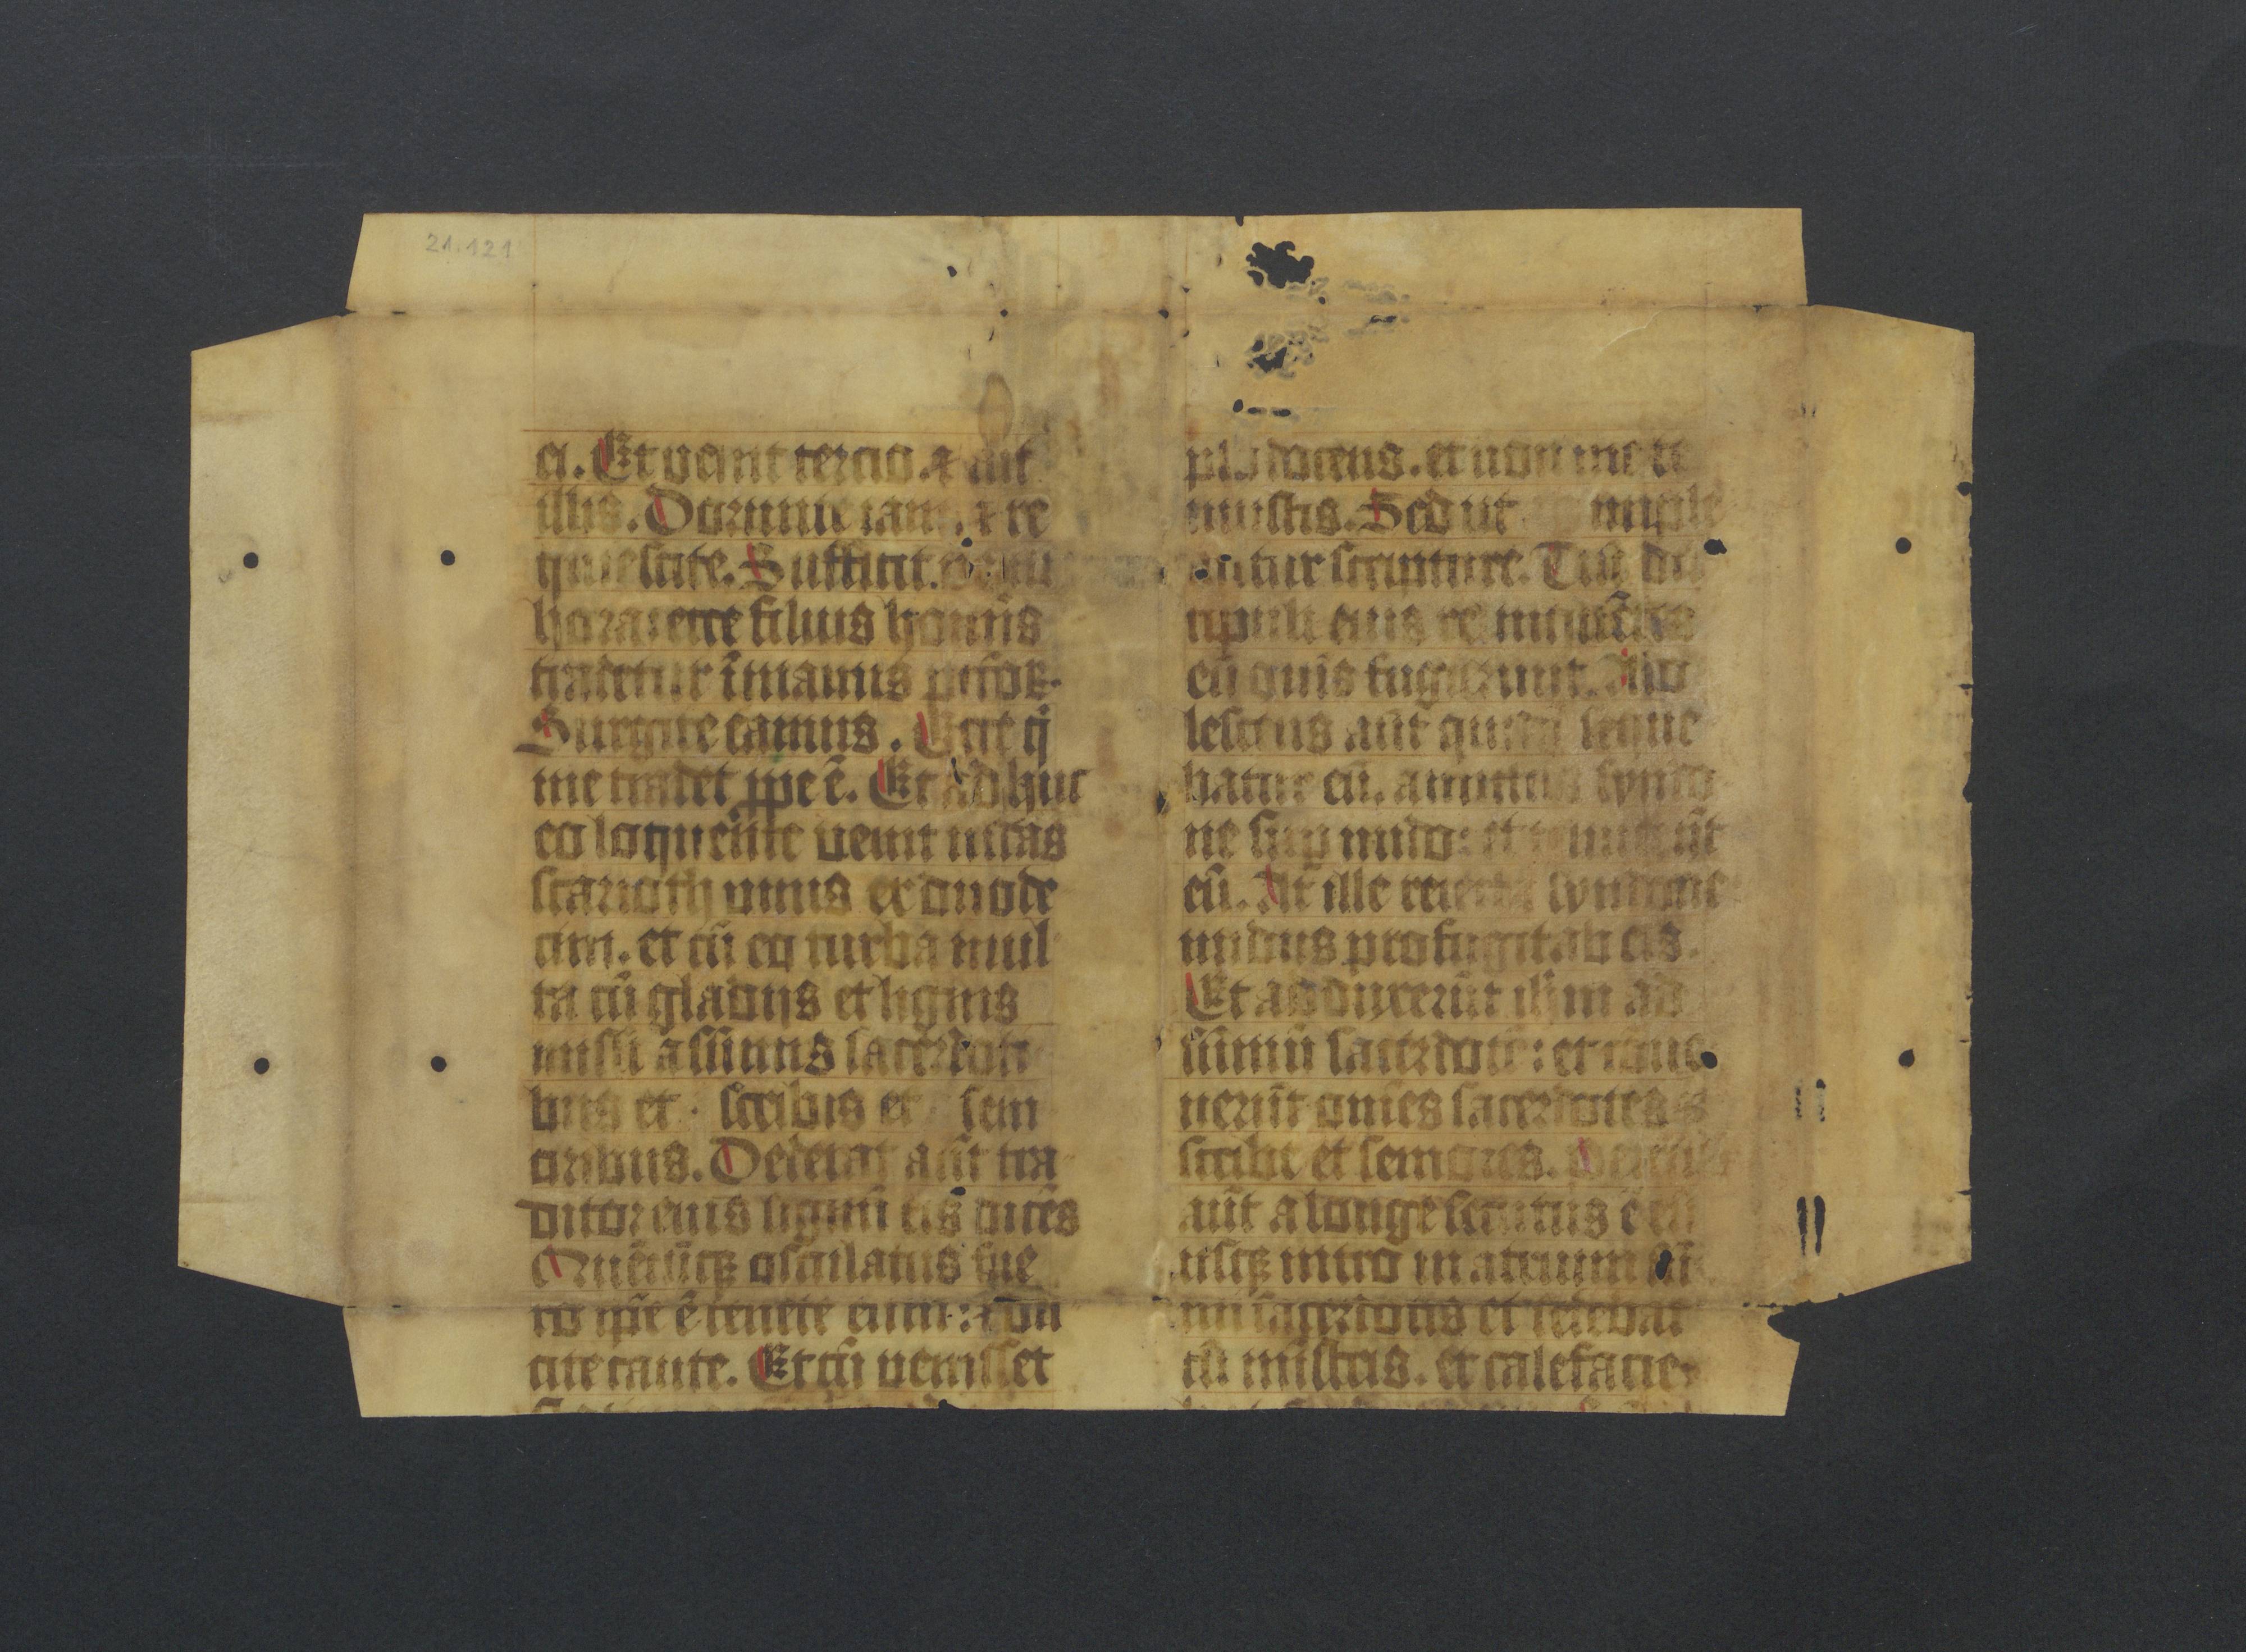 21.121
ei. Et venit tercio. ⁊ ait
illis. Dormite iam. ⁊ re
quiescite. Sufficit.
hora: ecce filius hoīnis
tradetur ī manus
Surgite eamus. Ecce q̄
me tradet ꝓpe ē. Et ad huc
eo loquēnte venit iudas
scarioth unus ex duode
cim. et cū eo turba mul
ta cū gladiis et lignis
missi a sūmis sacerdoti
bus et scribis et seni
oribus. Dederat aūt tra
ditor eius signū eis dicēs
Quēcūqꝫ osculatus fue
ro ip̄e ē tenete eum: ⁊ du
cite caute. Et cū venisset
docens. et non me te
nuistis. Sed ut imple
antur scripture. Tūc dis
cipuli eius relinquētes
eū om̄s fugierunt. Ado
lescens aūt quidā seque
batur eū. amictus syndo
ne suꝑ nudo: et tenuerūt
eū. At ille reiecta syndone
nudus profugit ab eis.
Et adduxerūt ihm ad
sūmū sacerdotē: et conue
nerūt om̄es sacerdotes ⁊
scribe et seniores. Petrus
aūt a longe secutus ē eū
usqꝫ intro in atrium sūi
mi sacerdotis et sedebat
cū mīstris. et calefacie